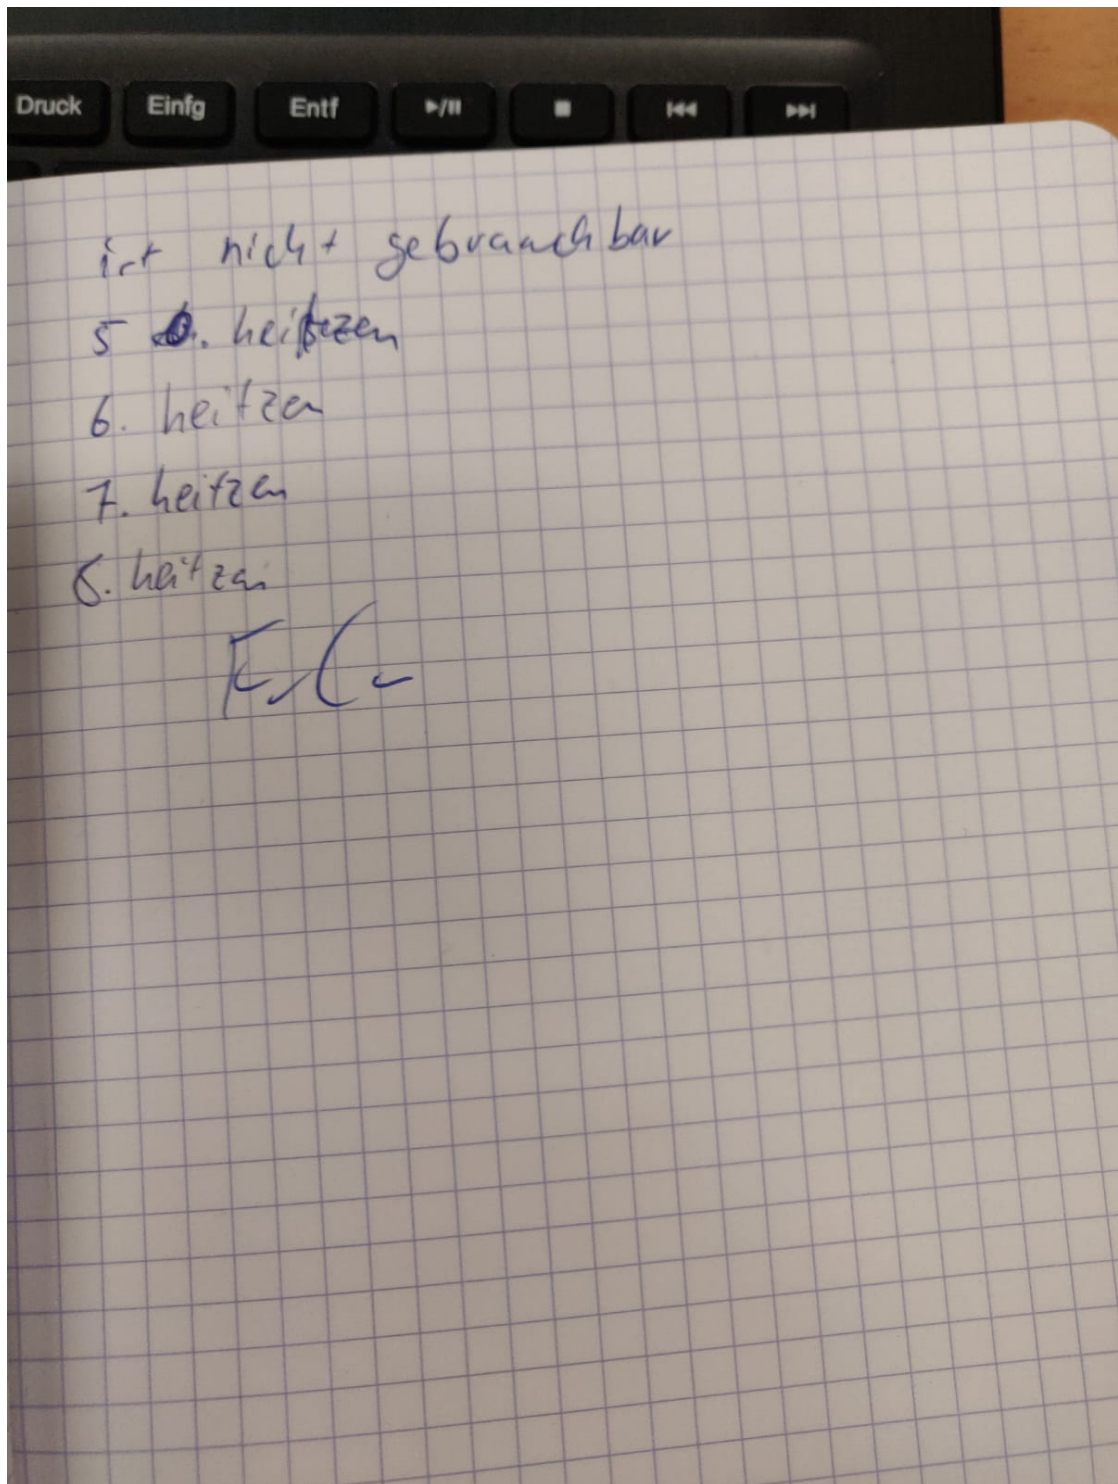 Druck Einfg Entf
ist nicht gebrauchbar
5 . heitzen
6. heitzen
7. heitzen
8. heitzen